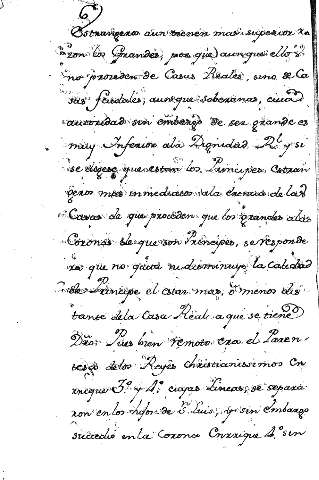 Estrangeros aun tienen mas superior ra
ron los Grandes, por que aunque ellos
no proceden de Casas Reales, sino de Ca
sas feudales, aunque soberanas, cuia
autoridad sin embargo de ser grande es
muy Inferior ala Dignidad Rl. y si
se digese que estan los Principes estran
geros mas inmediatos ala erencia de las
Casas de que proceden que los grandes alas
Coronas de que son Principes, se responde
ra que no quita ni disminuye la calidad
de Principe el estar mas, ó menos dis
tante dela Casa Real a que se tiene
Dro. Pues bien remoto era el Paren-
tesco delos Reyes Christianissimos En
rrique 3º y 4º cuias Lineas, se separa
ron en los hijos de Sn Luis, y sin embargo
succedio en la Corona Enrrique 4º sin